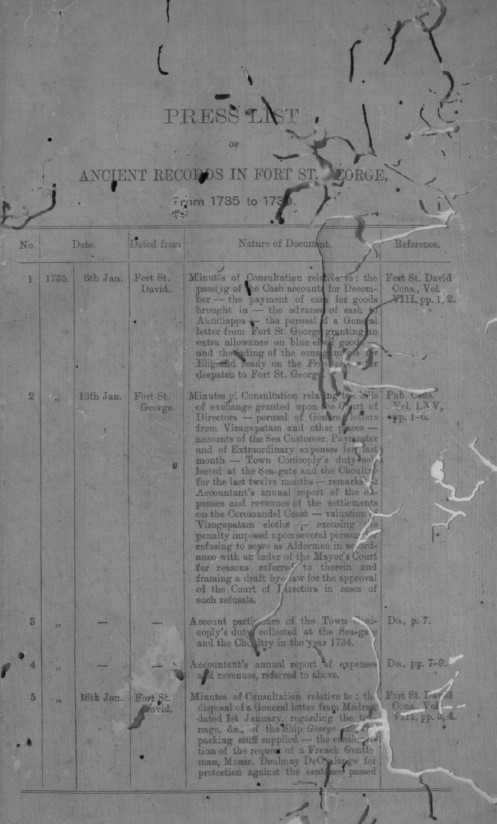 PRESS LIST
OF
ANCIENT RECORDS IN FORT ST. GEORGE,
From 1735 to 1739.
No. Date. Dated from Nature of Document. Reference.
1 1735. 6th Jan. Fort St. David. Minutes of Consultation relative to: the Fort St. David
passing of the Cash accounts for Decem- Cons., Vol.
ber — the payment of cash for goods VIII, pp. 1, 2.
brought in — the advance of cash to
— the perusal of a General
letter from Fort St. George granting an
extra allowance on blue cloth goods
and the lading of the for
England ready on the for
despatch to Fort St. George.
2 „ 13th Jan. Fort St. George. Minutes of Consultation relating to bills Pub. Cons.
of exchange granted upon the Court of Vol. LXV,
Directors — perusal of General letters pp. 1-6.
from Vizagapatam and other places —
accounts of the Sea Customer, Paymaster
and of Extraordinary expenses for last
month — Town Conicoply's duty col-
lected at the Sea-gate and the Choultry
for the last twelve months — remarks
Accountant's annual report of the ex-
penses and revenues of the settlements
on the Coromandel Coast — valuation
Vizagapatam cloths — excusing
penalty imposed upon several persons
refusing to serve as Aldermen in accord-
ance with an order of the Mayor's Court
for reasons referred to therein and
framing a draft bye-law for the approval
of the Court of Directors in cases of
such refusals.
3 „ — — Account particulars of the Town Coni- Do., p. 7.
coply's duty collected at the Sea-gate
and the Choultry in the year 1734.
4 „ — — Accountant's annual report of expenses Do., pp. 7-9.
and revenues, referred to above.
5 „ 16th Jan. Fort St. David. Minutes of Consultation relative to: the Fort St. David
disposal of a General letter from Madras, Cons., Vol.
dated 1st January, regarding the ton- VIII, pp. 3, 4.
nage, &c., of the Ship George
packing stuff supplied — the considera-
tion of the request of a French Gentle-
man, Monsr.
protection against the sentence passed